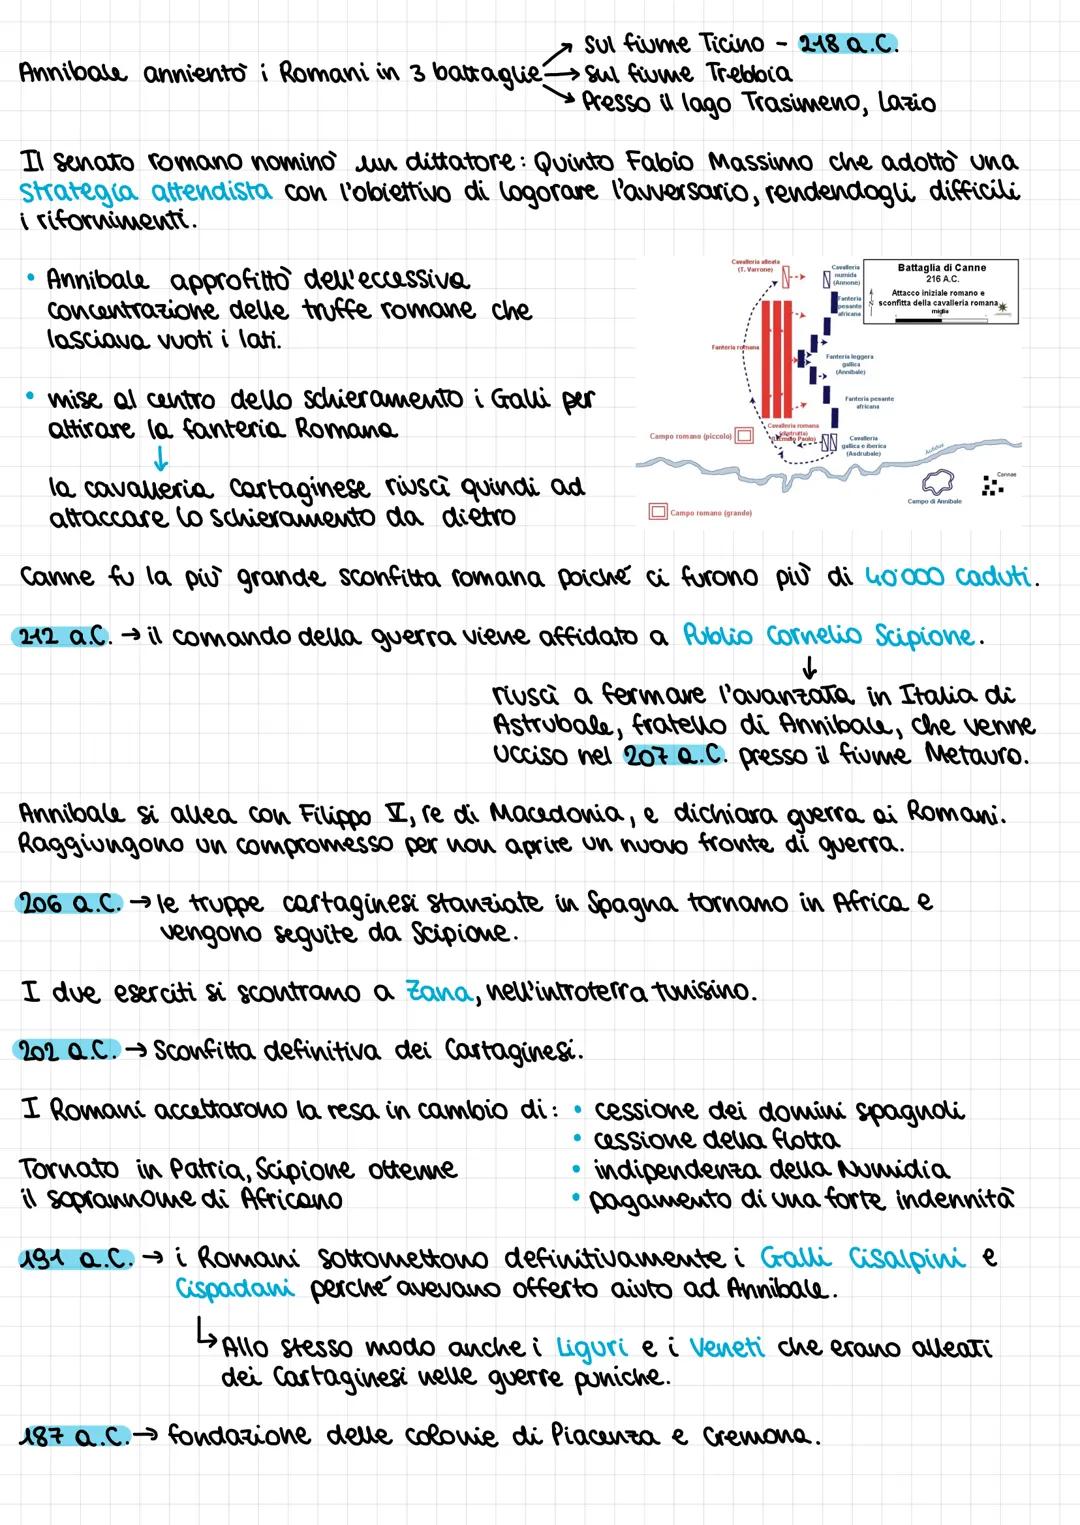 Annibale annientò i Romani in 3 battaglie → sul fiume Ticino - 218 a.C.
→ sul fiume Trebbia
→ Presso il lago Trasimeno, Lazio
Il senato romano nominò un dittatore: Quinto Fabio Massimo che adottò una
strategia attendista con l'obiettivo di logorare l'avversario, rendendogli difficili
i rifornimenti.
• Annibale approfittò dell'eccessiva
concentrazione delle truffe romane che
lasciava vuoti i lati.
• mise al centro dello schieramento i Galli per
attirare la fanteria Romana
↓
la cavalleria Cartaginese riuscì quindi ad
attaccare lo schieramento da dietro
Cavalleria alleata
(T. Varrone)
Cavalleria
numida
(Annone)
Battaglia di Canne
216 A.C.
Attacco iniziale romano e
sconfitta della cavalleria romana
miglia
Fanteria
pesante
africana
Fanteria romana
Fanteria leggera
gallica
(Annibale)
Fanteria pesante
africana
Cavalleria romana
(distrutta)
(L. Emilio Paolo)
Campo romano (piccolo)
Cavalleria
gallica e iberica
(Asdrubale)
Aufidus
Cannae
Campo di Annibale
Campo romano (grande)
Canne fu la più grande sconfitta romana poiché ci furono più di 40'000 caduti.
212 a.C. → il comando della guerra viene affidato a Publio Cornelio Scipione.
↓
riuscì a fermare l'avanzata in Italia di
Astrubale, fratello di Annibale, che venne
ucciso nel 207 a.C. presso il fiume Metauro.
Annibale si allea con Filippo V, re di Macedonia, e dichiara guerra ai Romani.
Raggiungono un compromesso per non aprire un nuovo fronte di guerra.
206 a.C. → le truppe cartaginesi stanziate in Spagna tornano in Africa e
vengono seguite da Scipione.
I due eserciti si scontrano a Zana, nell'introterra tunisino.
202 a.C. → Sconfitta definitiva dei Cartaginesi.
I Romani accettarono la resa in cambio di: • cessione dei domini spagnoli
• cessione della flotta
• indipendenza della Numidia
• pagamento di una forte indennità
Tornato in Patria, Scipione ottenne
il soprannome di Africano
191 a.C. → i Romani sottomettono definitivamente i Galli Cisalpini e
Cispadani perché avevano offerto aiuto ad Annibale.
↳ Allo stesso modo anche i Liguri e i Veneti che erano alleati
dei Cartaginesi nelle guerre puniche.
187 a.C. → fondazione delle colonie di Piacenza e Cremona.